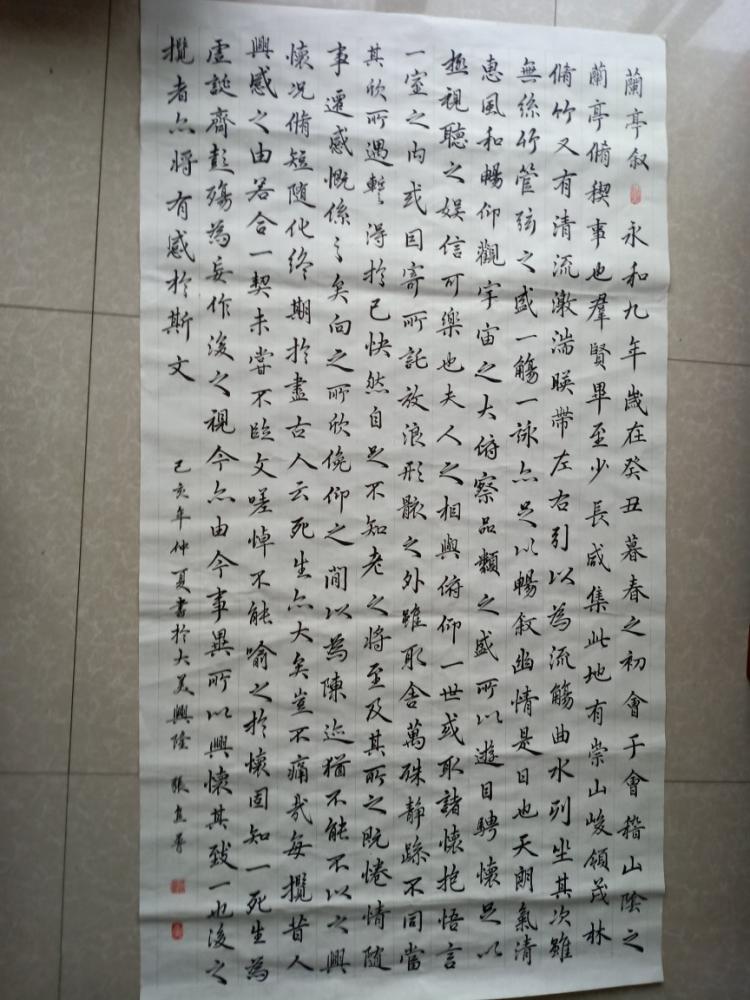 蘭亭叙 永和九年歲在癸丑暮春之初會于會稽山陰之
蘭亭脩稧事也羣賢畢至少長咸集此地有崇山峻領茂林
脩竹又有清流激湍暎帶左右引以為流觴曲水列坐其次雖
無絲竹管弦之盛一觴一詠亦足以暢叙幽情是日也天朗氣清
惠風和暢仰觀宇宙之大俯察品類之盛所以遊目騁懷足以
極視聽之娛信可樂也夫人之相與俯仰一世或取諸懷抱悟言
一室之内或因寄所託放浪形骸之外雖取舍萬殊静躁不同當
其欣所遇蹔得於己快然自足不知老之將至及其所之既惓情随
事遷感慨係之矣向之所欣俛仰之間以為陳迹猶不能不以之興
懷况脩短随化終期於盡古人云死生亦大矣豈不痛哉每攬昔人
興感之由若合一契未嘗不臨文嗟悼不能喻之於懷固知一死生為
虛誕齊彭殤為妄作後之視今亦由今事異所以興懷其致一也後之
攬者亦將有感於斯文
己亥年仲夏書於大美興隆 張